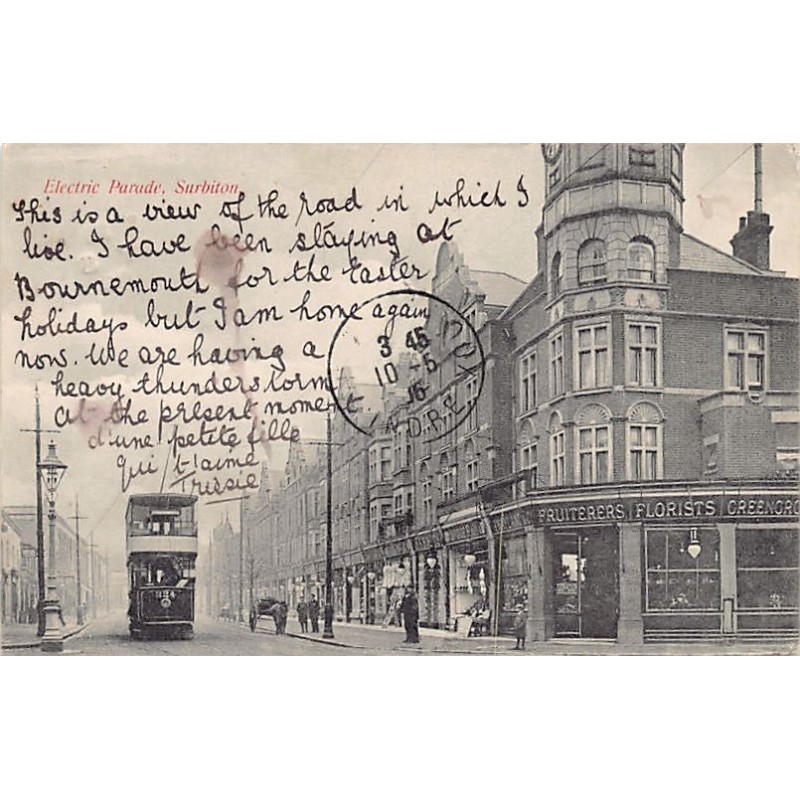 Electric Parade, Surbiton
This is a view of the road in which I
live. I have been staying at
Bournemouth for the Easter
holidays but I am home again
now. We are having a
heavy thunderstorm
at the present moment.
d'une petete fille
qui t'aime
3 45
10 - 5
16
FRUITERERS FLORISTS GREENGRO